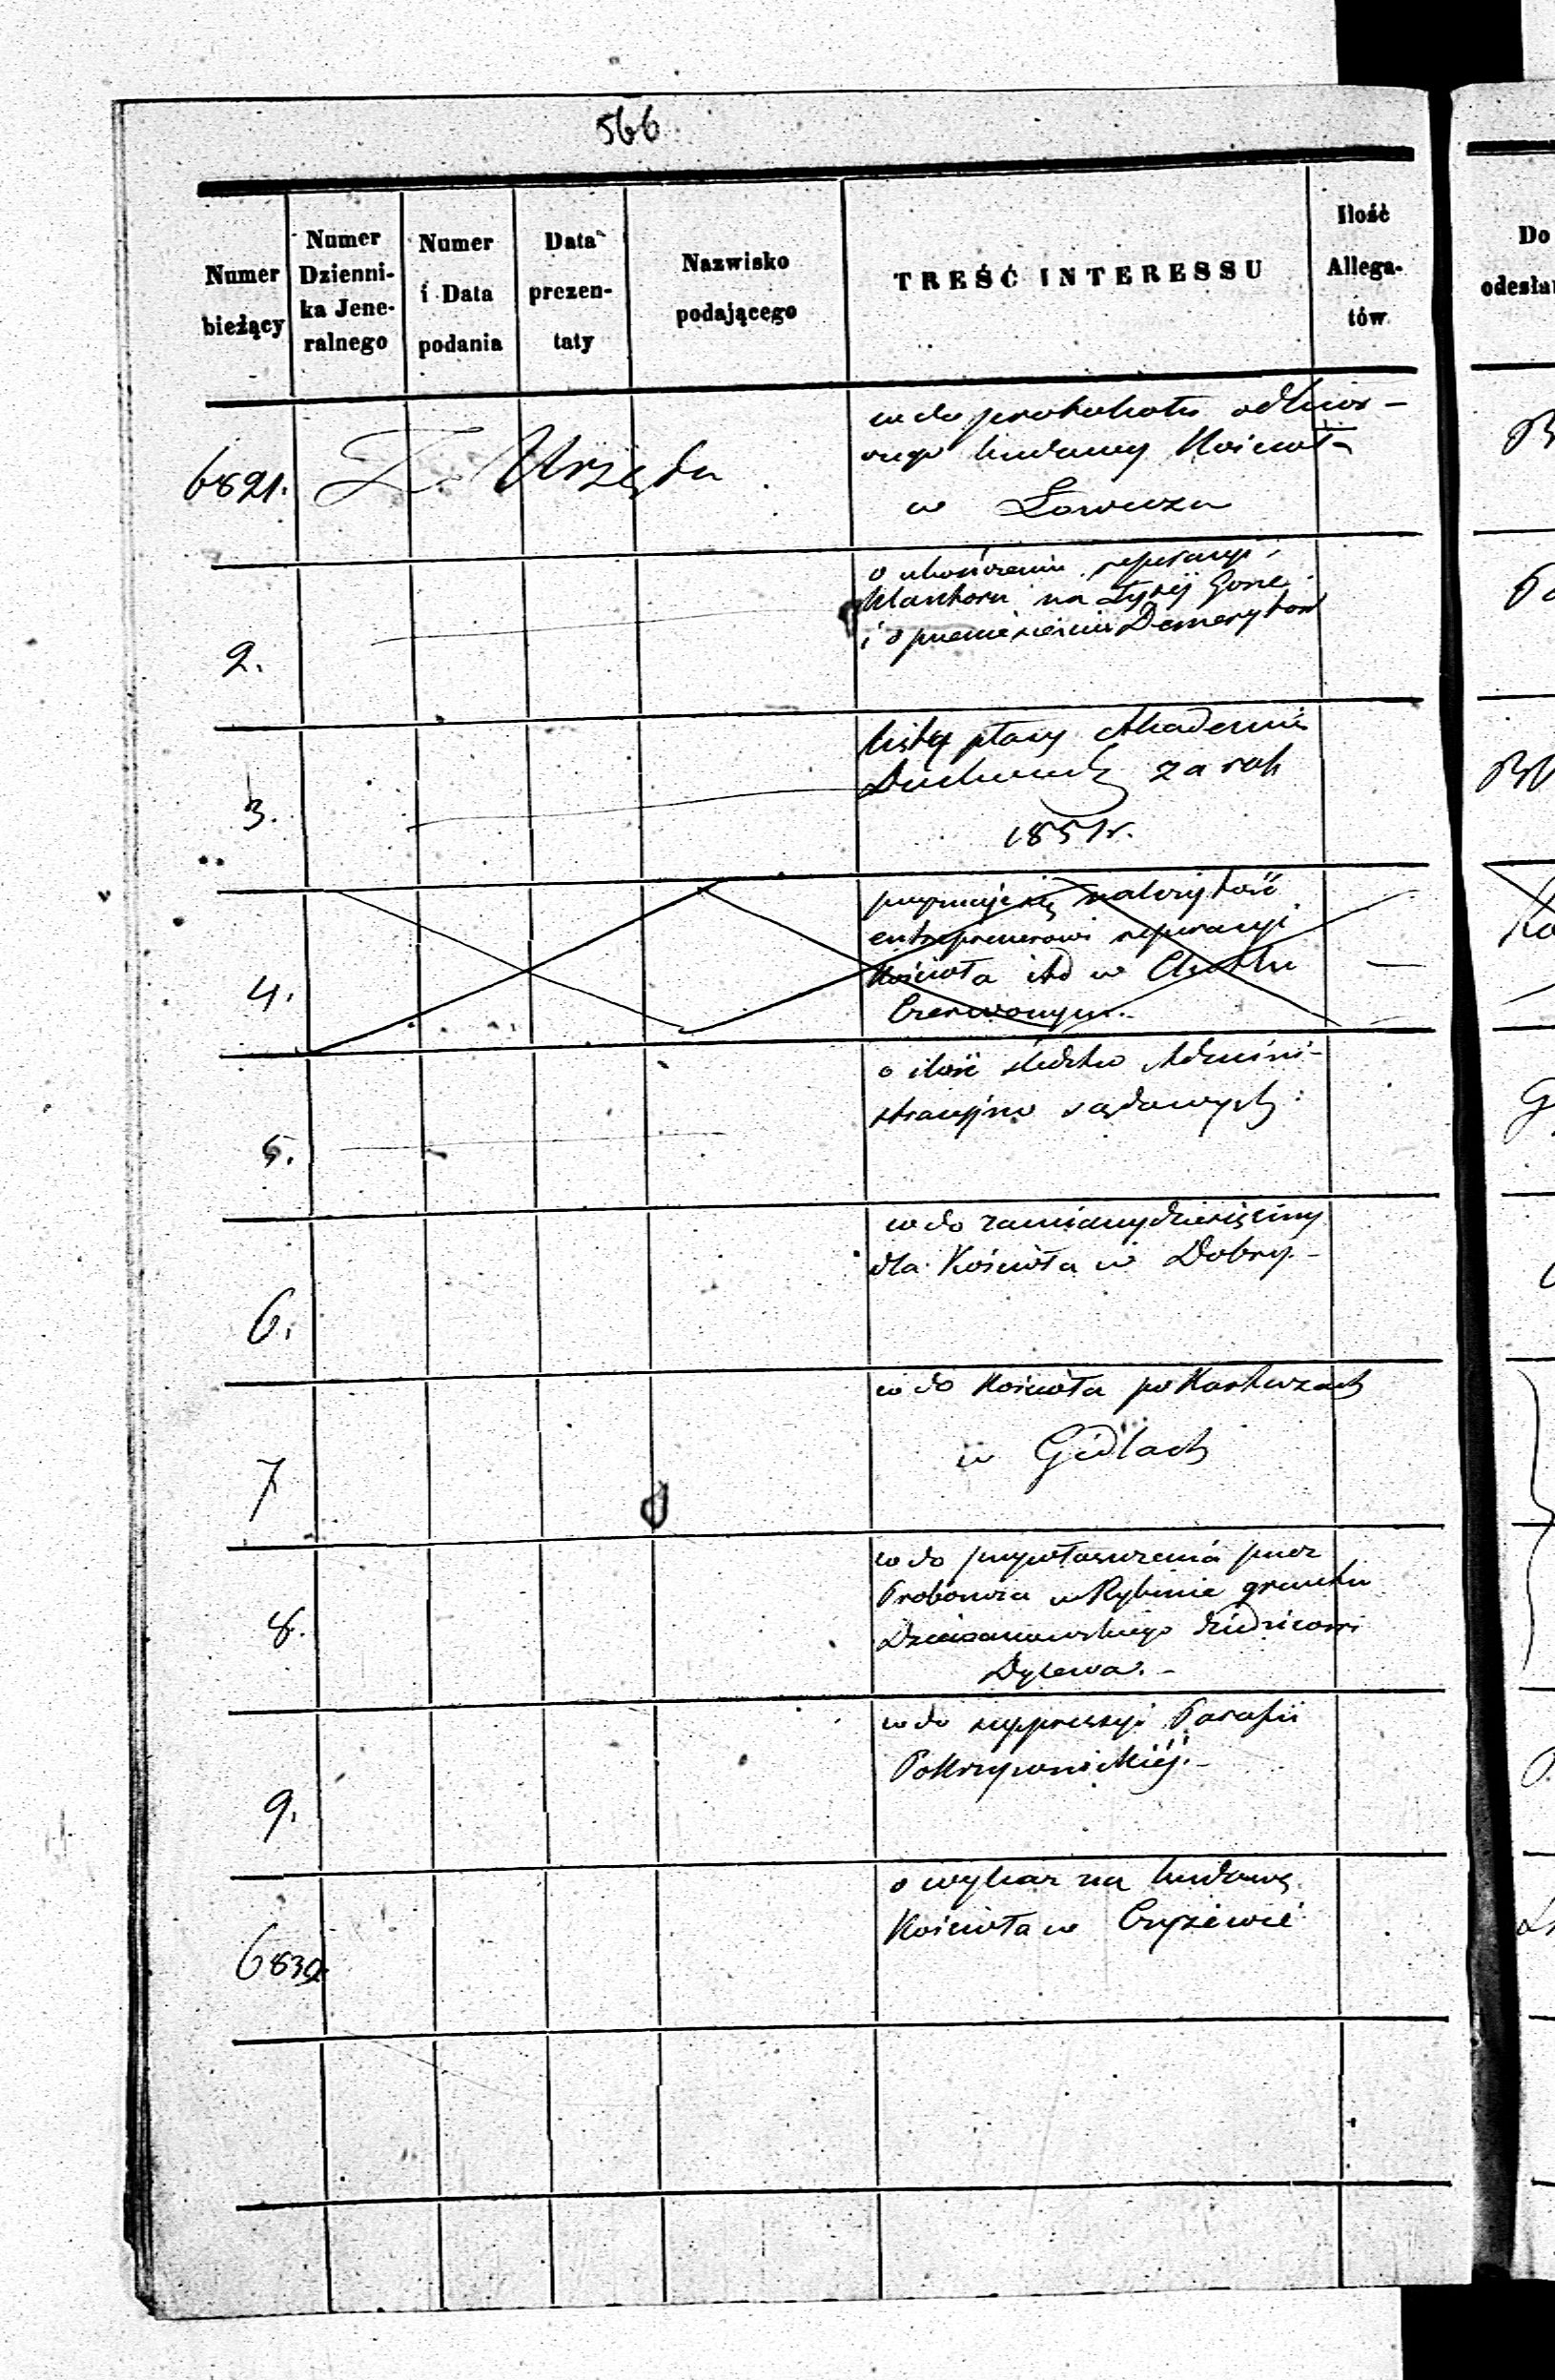 566
Numer bieżący
Numer Dzienni-ka Jene-ralnego
Numer i Data podania
Data prezen-taty
Nazwisko podającego
TREŚĆ INTERESSU
Ilość Allega-tów
Do
odesła
6821.
Z Urzędu
w do protokołu odbior-
czego budowy Kościoła
w Łowiczu
2.
o ukończeniu reperacyi
Klasztoru na Łysej Górze
i o przeniesieniu Demerytów
3.
listy płacy Akademii
Duchownej za rok
1851 r.
4.
przyznaje się należytość
entreprenerowi reperacyi
Kościoła itd w
Czerwonym.
5.
o ilość śledztw Admini-
stracyjno sądowych
6.
w do zamiany dziesięciny
dla Kościoła w Dobry.-
7
w do Kościoła po Kartuzach
w Gidlach
8.
w do przywłaszczenia przez
Proboszcza w Rybinie gruntu
dziedzicowi
Dylewa.-
9.
w do suppressyi Parafii
Pokrzywnickiej.-
6830.
o wykaz na budowę
Kościoła w Czyżewie